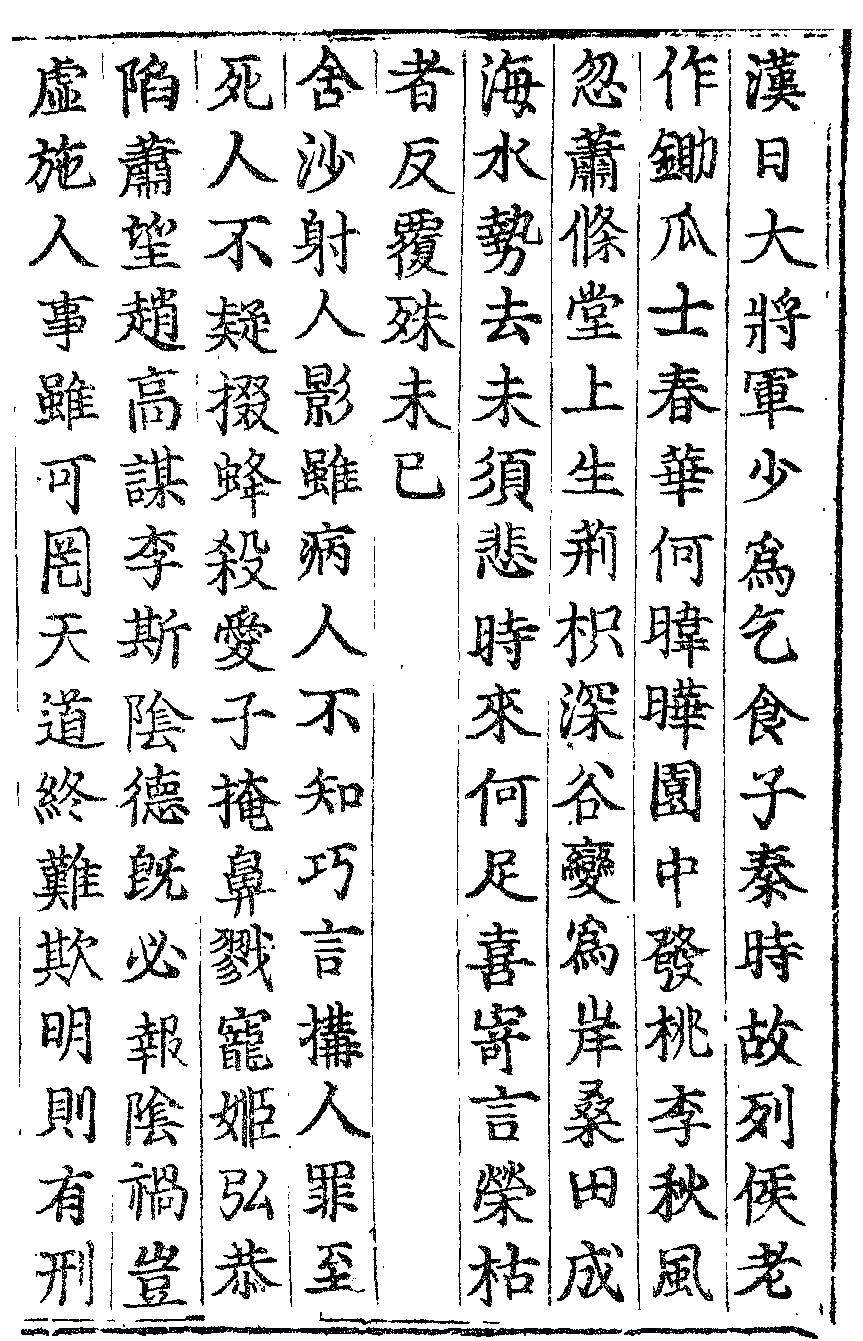 漢日大將軍少爲乞食子秦時故列侯老
作鋤瓜士春華何暐曄園中發桃李秋風
忽蕭條堂上生荊枳深谷變爲岸桑田成
海水勢去未須悲時來何足喜寄言榮枯
者反覆殊未已
含沙射人影雖病人不知巧言搆人罪至
死人不疑掇蜂殺愛子掩鼻戮寵姬弘恭
陷蕭望趙高謀李斯陰德旣必報陰禍豈
虛施人事雖可罔天道終難欺明則有刑